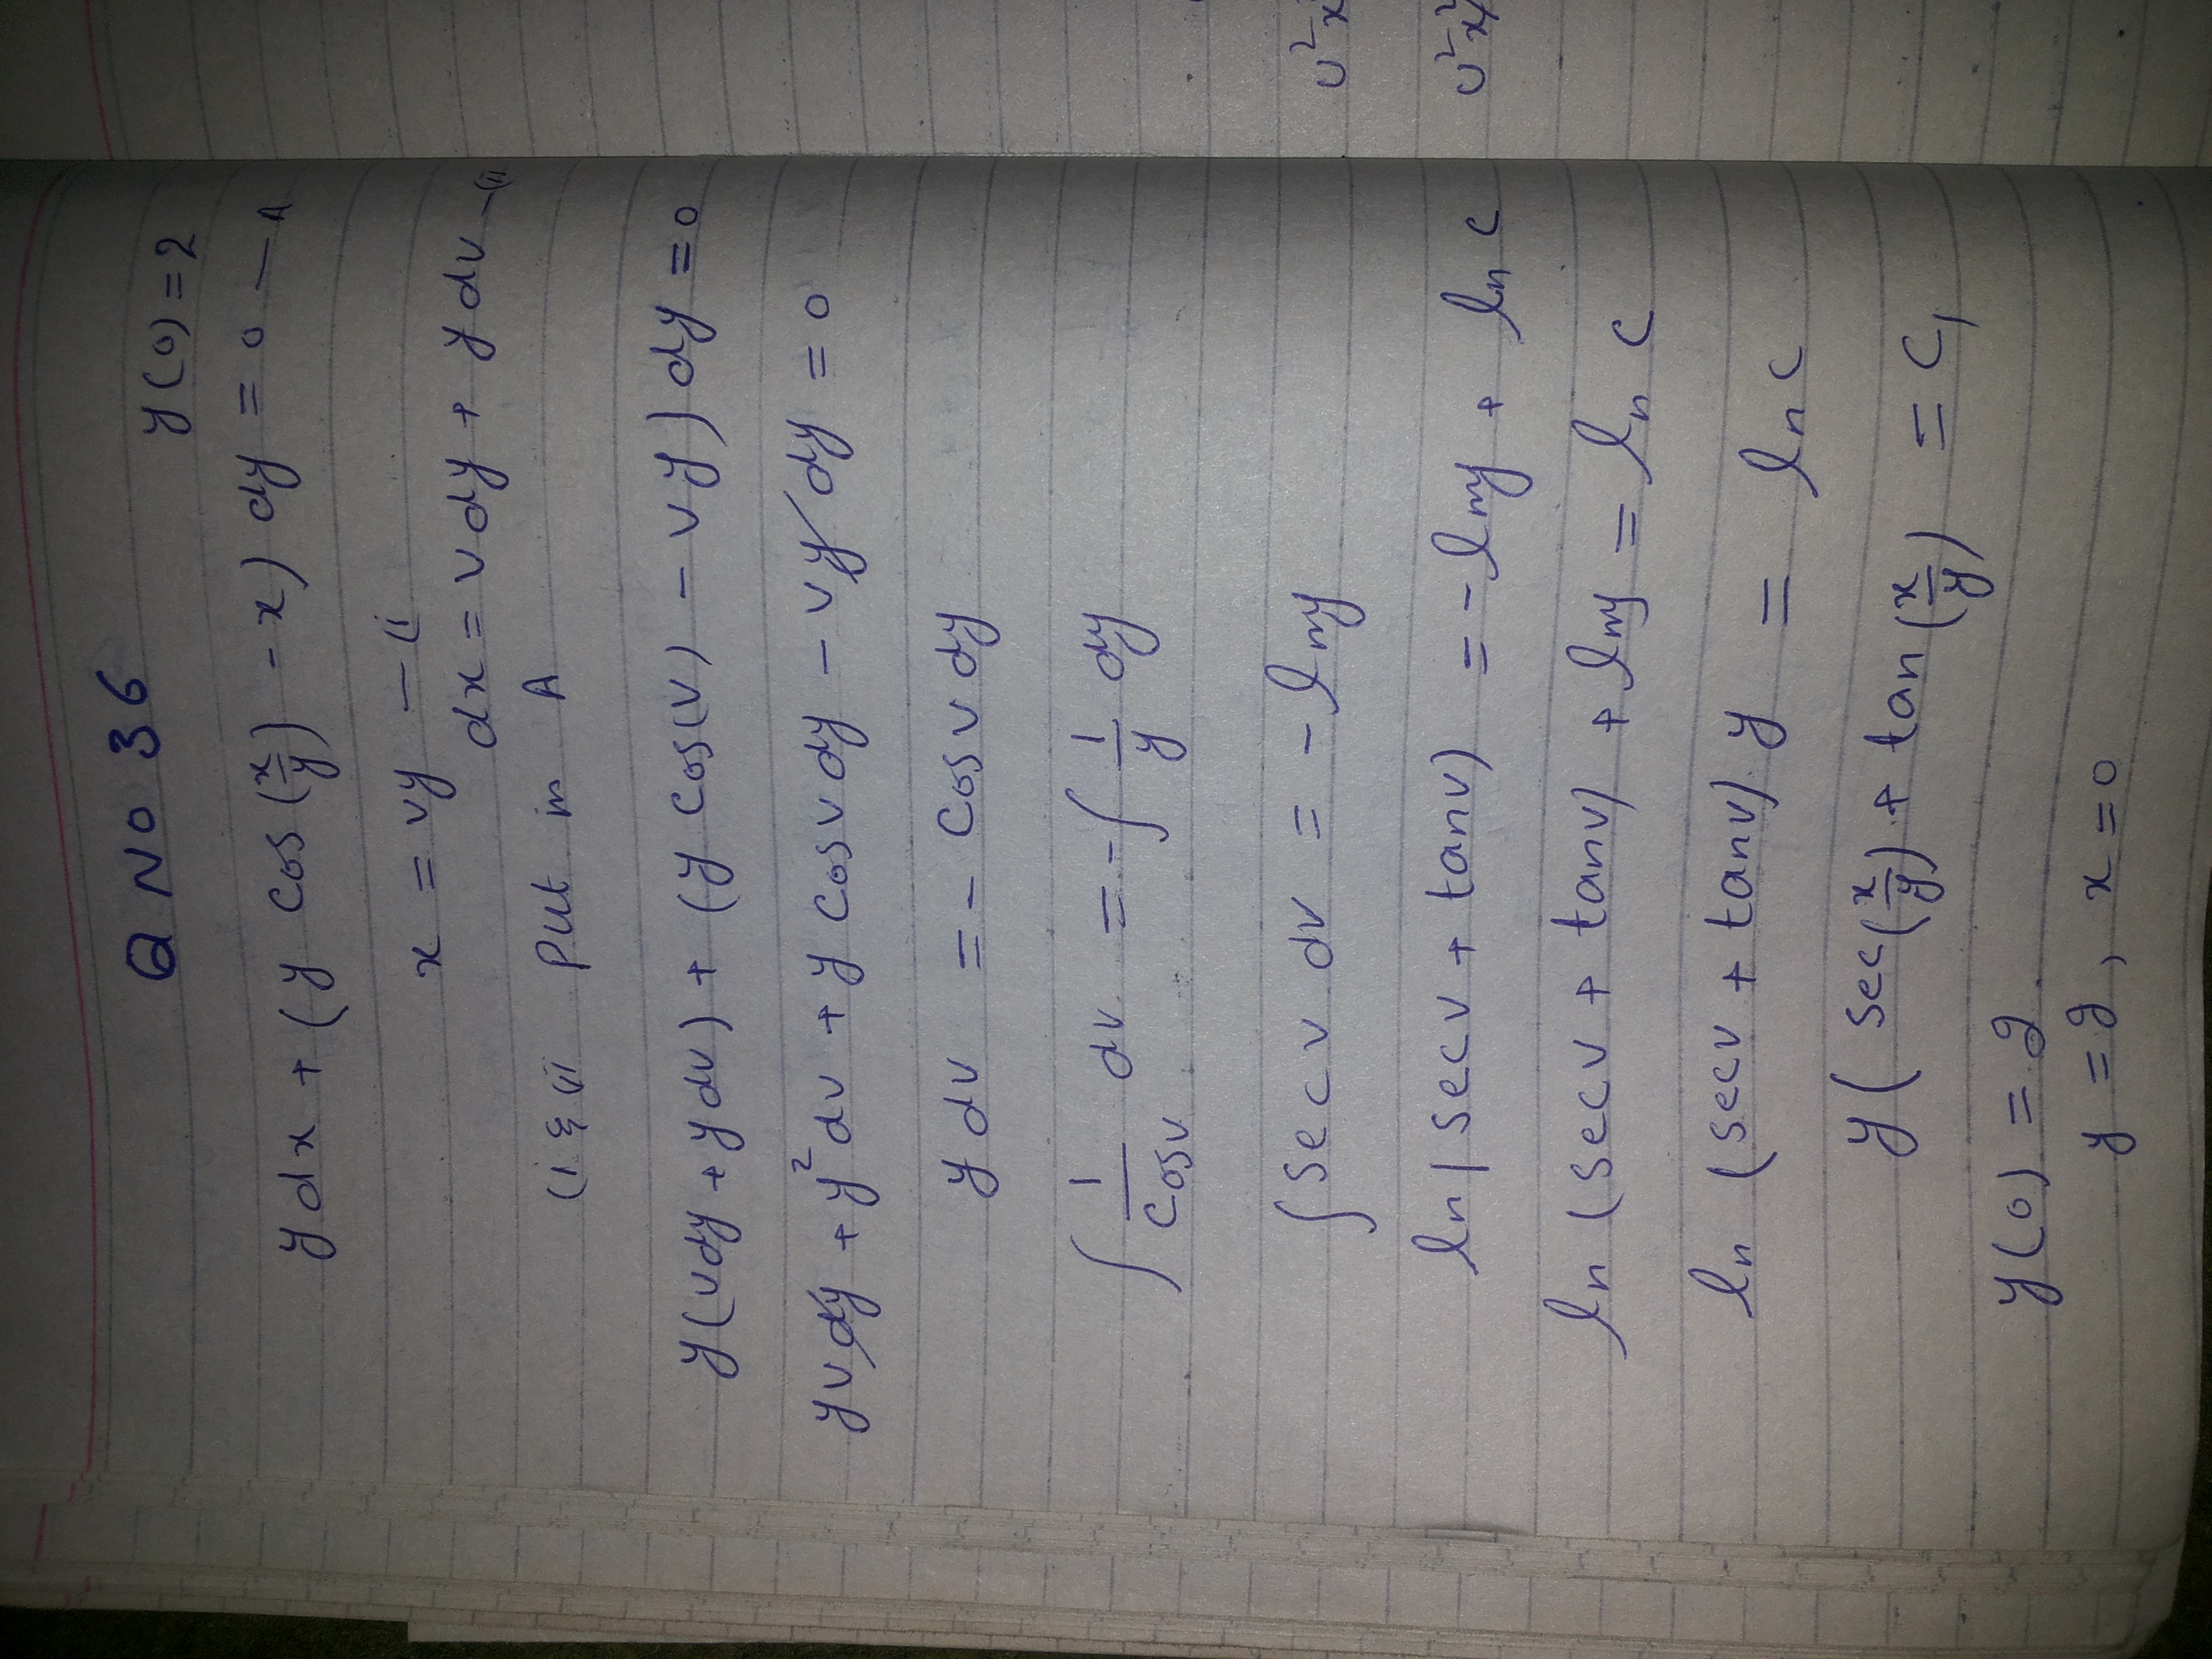 Q No 36
y(0) = 2
y dx + (y cos(x/y) - x) dy = 0 — A
x = vy — (i
dx = v dy + y dv — (ii
(i & (ii put in A
y(vdy + y dv) + (y cos(v) - vy) dy = 0
yv dy + y² dv + y cosv dy - vy dy = 0
y dv = - cosv dy
∫ 1/cosv dv = - ∫ 1/y dy
∫ secv dv = - lny
ln| secv + tanv) = - lny + ln c
ln (secv + tanv) + lny = ln c
ln (secv + tanv) y = ln c
y( sec(x/y) + tan(x/y) = C,
y(0) = 2
y = 2, x = 0
U²x
U²x²